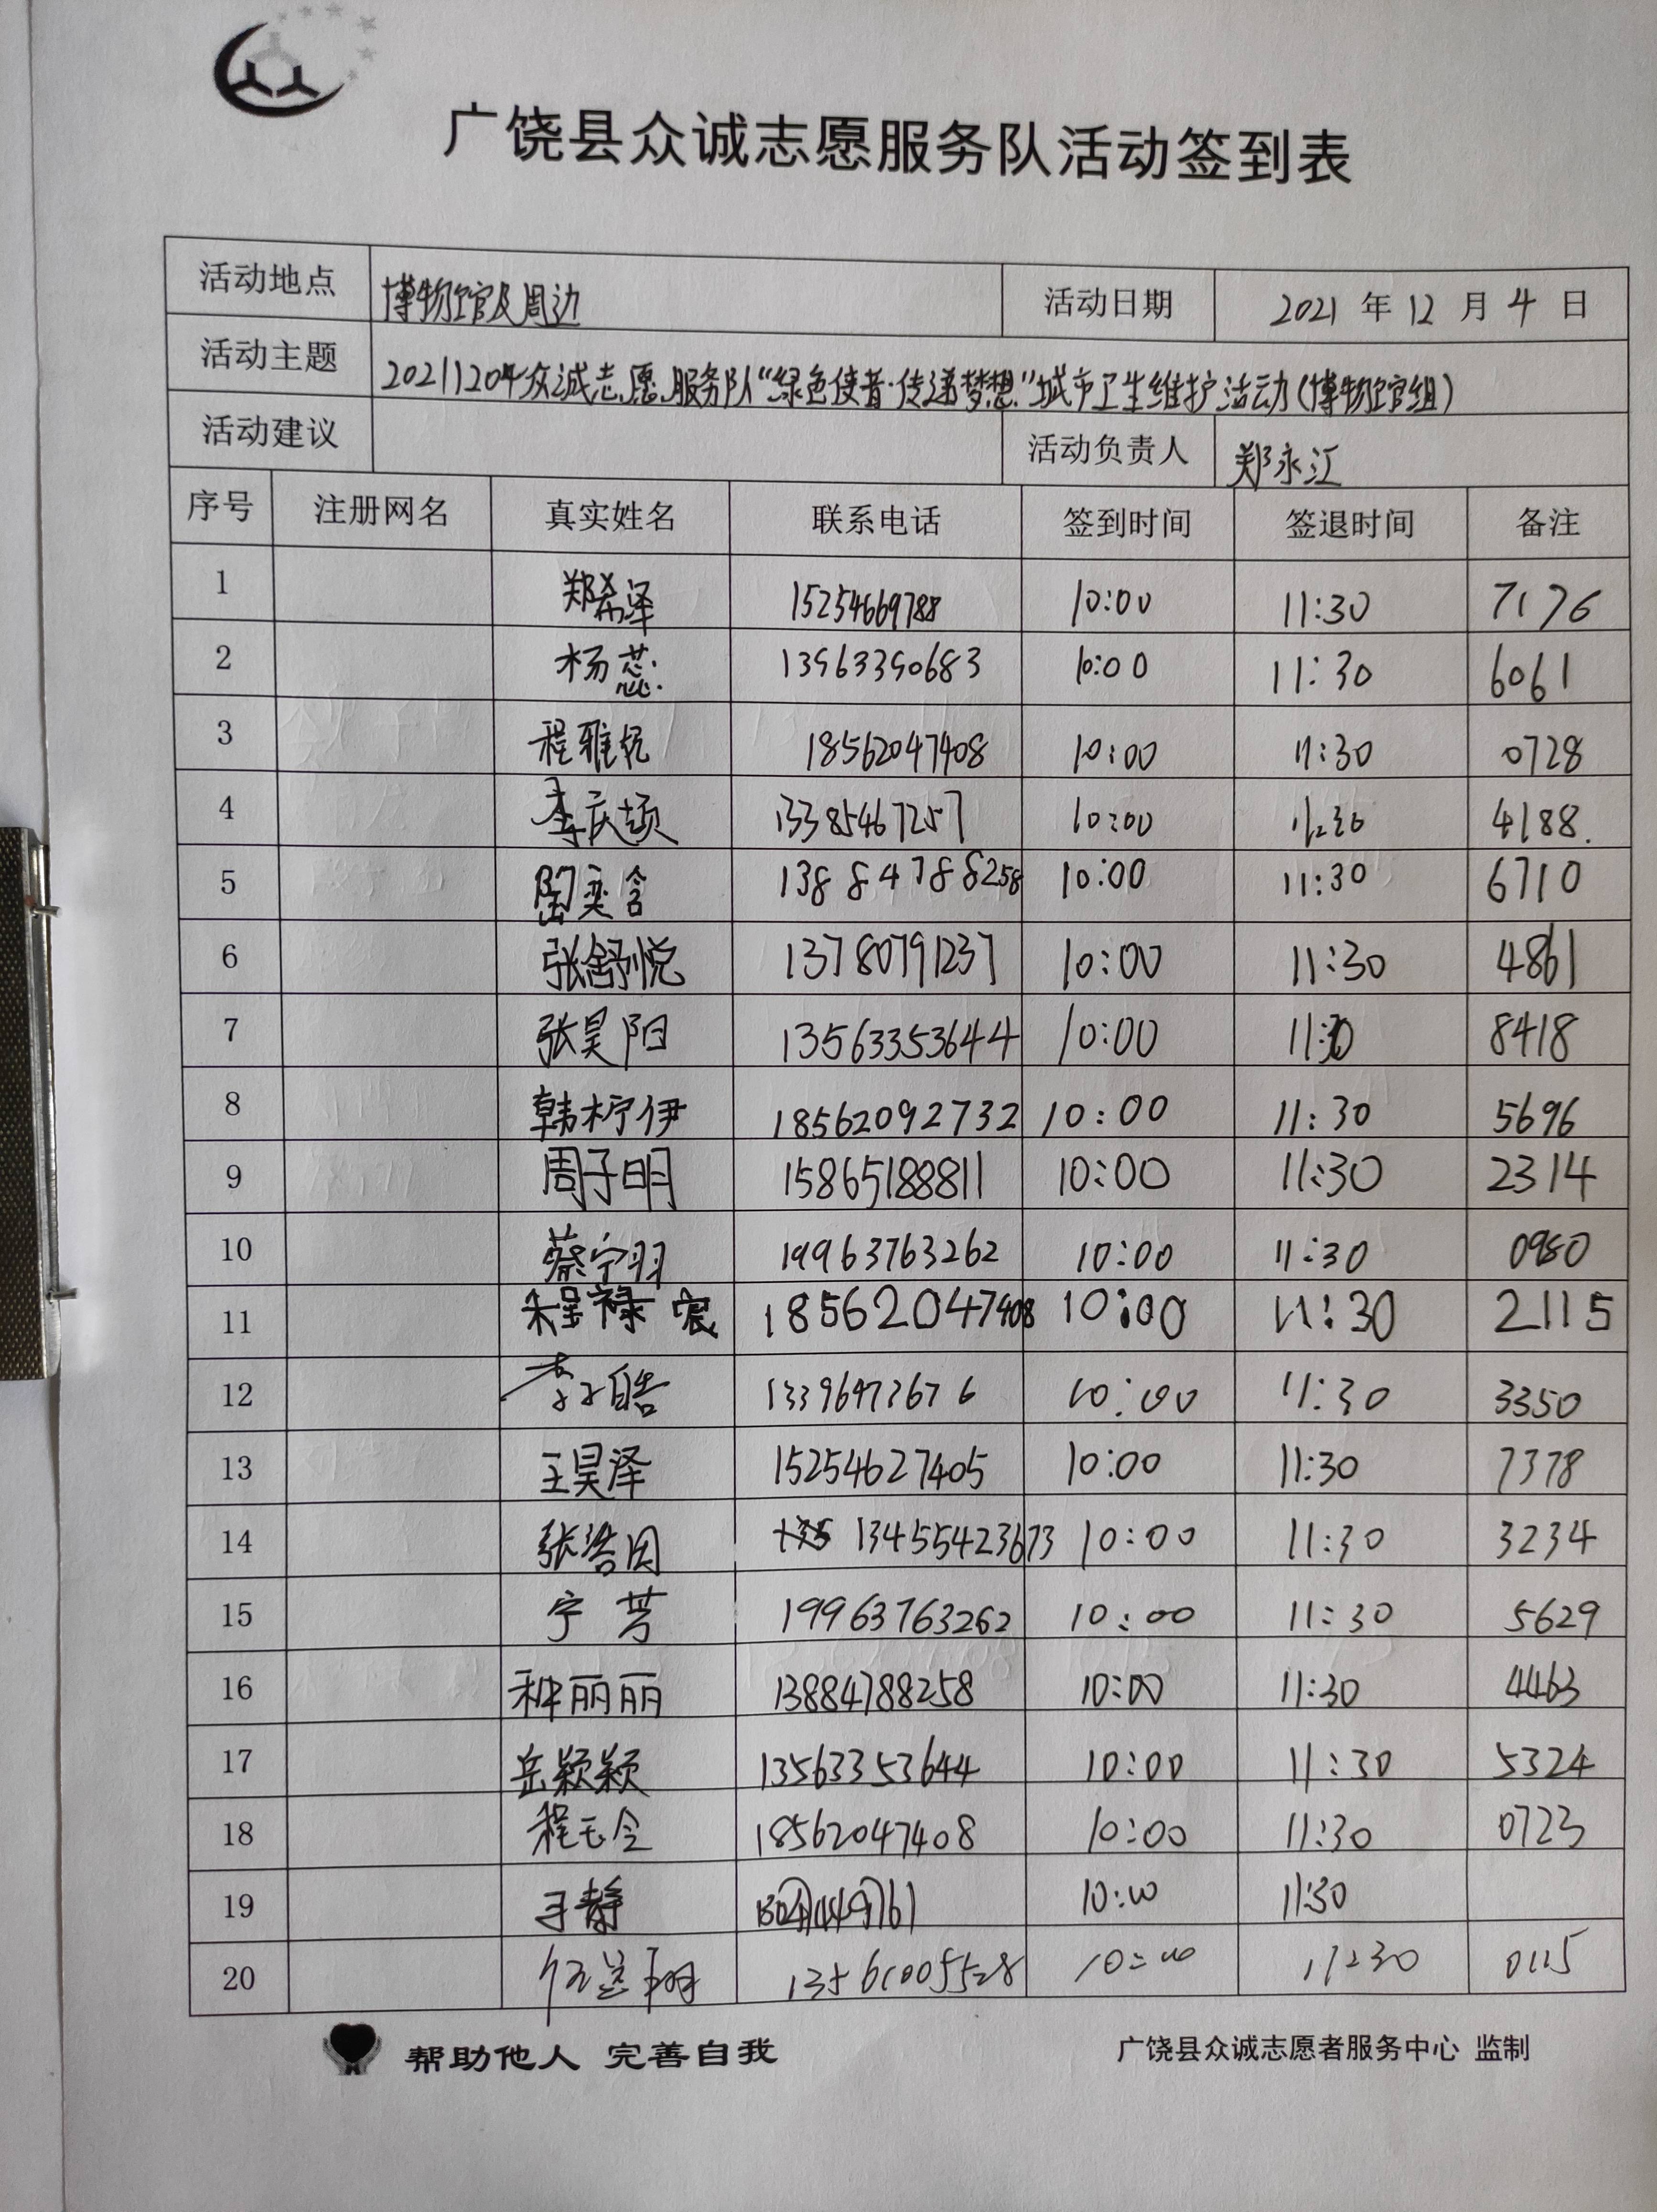 广饶县众诚志愿服务队活动签到表
活动地点 博物馆及周边 活动日期 2021 年 12 月 4 日
活动主题 20211204众诚志愿服务队“绿色使者·传递梦想”城市卫生维护活动(博物馆组)
活动建议 活动负责人 郑永江
序号 注册网名 真实姓名 联系电话 签到时间 签退时间 备注
1 郑希泽 15254669788 10:00 11:30 7176
2 杨蕊 13963390683 10:00 11:30 6061
3 程雅 18562047408 10:00 11:30 0728
4 李庆颉 13385467257 10:00 11:30 4188.
5 陶奕含 13884788258 10:00 11:30 6710
6 张舒悦 13780791237 10:00 11:30 4861
7 张昊阳 13563353644 10:00 11:30 8418
8 韩柠伊 18562092732 10:00 11:30 5696
9 周子明 15865188811 10:00 11:30 2314
10 蔡宁羽 19963763262 10:00 11:30 0980
11 程禄宸 18562047408 10:00 11:30 2115
12 李子皓 13396473676 10:00 11:30 3350
13 王昊泽 15254627405 10:00 11:30 7378
14 张浩因 13455423673 10:00 11:30 3234
15 宁芳 19963763262 10:00 11:30 5629
16 种丽丽 13884788258 10:00 11:30 4463
17 岳颖颖 13563353644 10:00 11:30 5324
18 程 18562047408 10:00 11:30 0723
19 王静 10:00 11:30
20 13561005528 10:00 11:30 0115
帮助他人 完善自我 广饶县众诚志愿者服务中心 监制